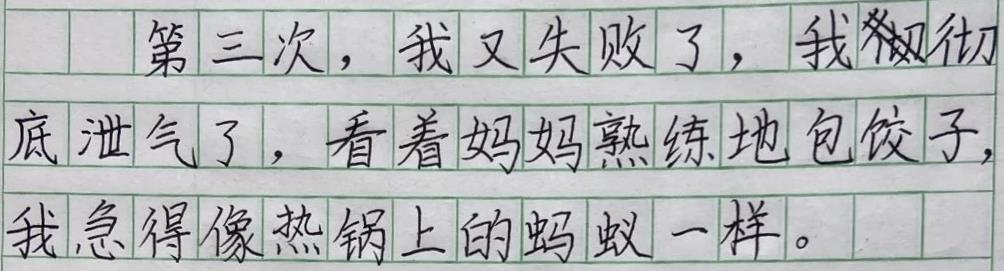 第三次，我又失败了，我彻
底泄气了，看着妈妈熟练地包饺子，
我急得像热锅上的蚂蚁一样。